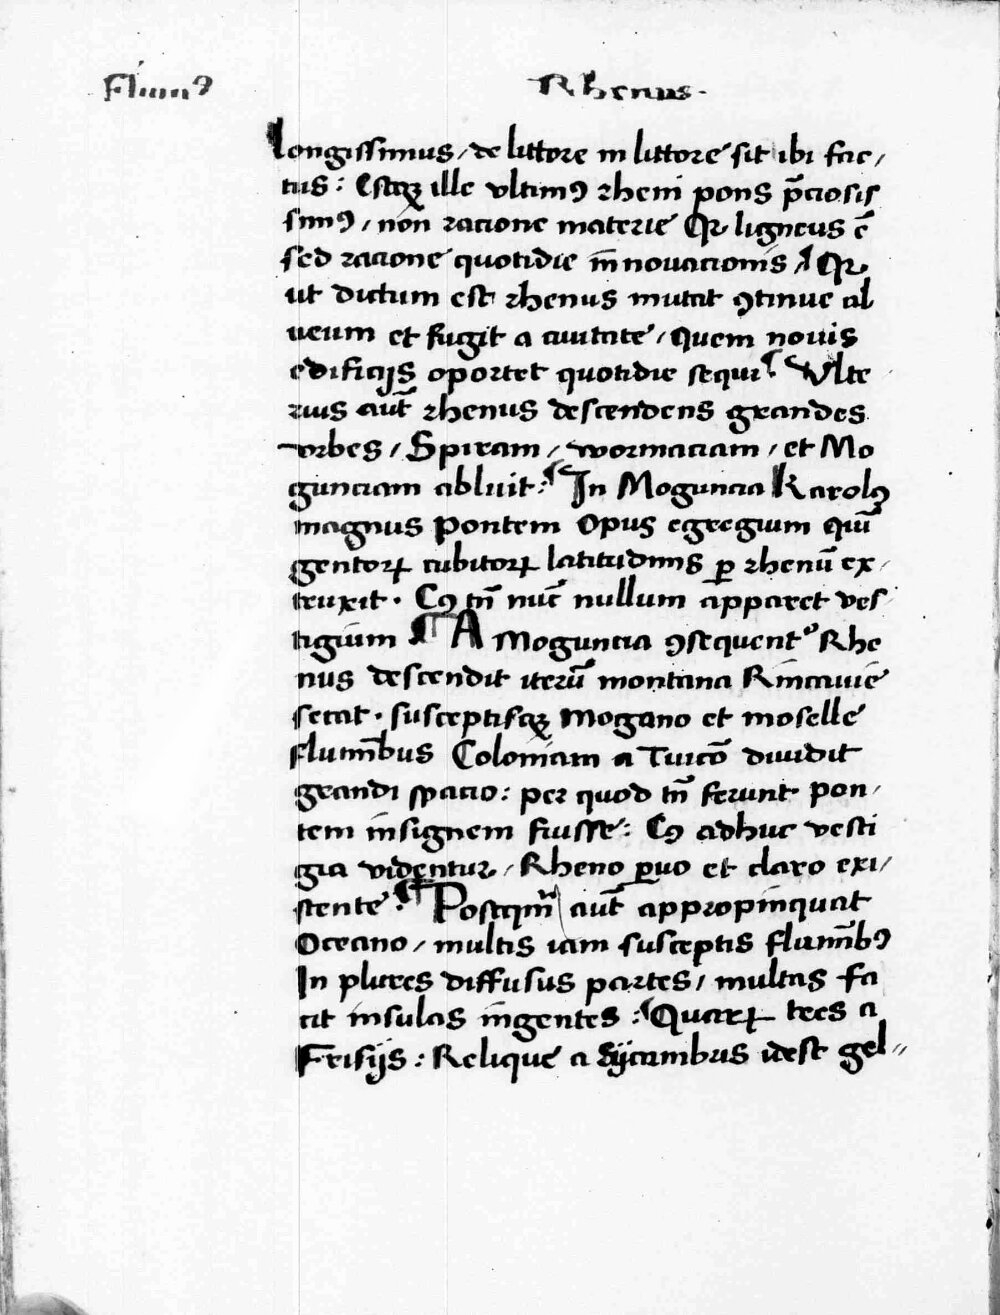 Fluuiꝰ
Rhenus.
Longissimus / de littore in littore sit ibi fac /
tus : Estqꝫ ille vltimꝰ rheni pons p̄ciosis
simꝰ / non racione materie Qꝛ ligneus ē
sed racione quotidie in̄nouacionis / Qꝛ
ut dictum est rhenus mutat ꝯtinue al
ueum et fugit a ciuitate / quem nouis
edificijs oportet quotidie sequi ¶ Vlte
rius aut̄ rhenus descendens grandes
vrbes / Spiram / wormaciam / et Mo
gunciam abluit : ¶ In Moguncia Karolꝰ
magnus pontem opus egregium quī
gentoꝝ cubitoꝝ latitudinis ꝑ rhenū ex /
truxit . Cꝰ tn̄ nūc nullum apparet ves
tigium ¶ A Moguncia ꝯsequent᷑ Rhe
nus descendit iterū montana Rincauie
secat . susceptisqꝫ Mogano et moselle
flumībus Coloniam a Tuicō diuidit
grandi spacio : per quod tn̄ ferunt pon /
tem insignem fuisse : Cꝰ adhuc vesti
gia videntur / Rheno ꝑuo et claro exi /
stente . ¶ Postqm̄ aut̄ appropinquat
Oceano / multis iam susceptis flumībꝰ
In plures diffusus partes / multas fa
cit insulas ingentes : Quaꝝ tres a
Frisijs : Relique a Sycambus idest gel //